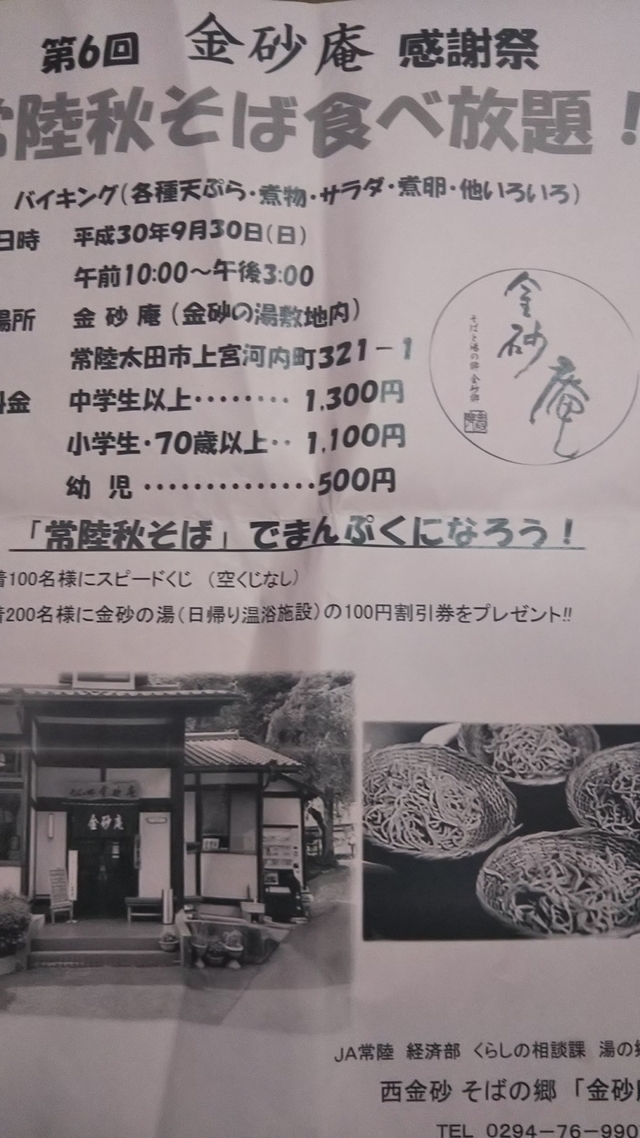 第6回 金砂庵 感謝祭
常陸秋そば食べ放題！
バイキング（各種天ぷら・煮物・サラダ・煮卵・他いろいろ）
日時 平成30年9月30日（日）
午前10:00～午後3:00
場所 金砂庵（金砂の湯敷地内）
常陸太田市上宮河内町321－1
料金 中学生以上‥‥‥‥ 1,300円
小学生・70歳以上‥ 1,100円
幼 児 ‥‥‥‥‥‥‥500円
金砂庵
そばと湯の郷 金砂郷
「常陸秋そば」でまんぷくになろう！
着100名様にスピードくじ （空くじなし）
着200名様に金砂の湯（日帰り温浴施設）の100円割引券をプレゼント!!
金砂庵
JA常陸 経済部 くらしの相談課 湯の郷
西金砂 そばの郷 「金砂庵
TEL 0294－76－990